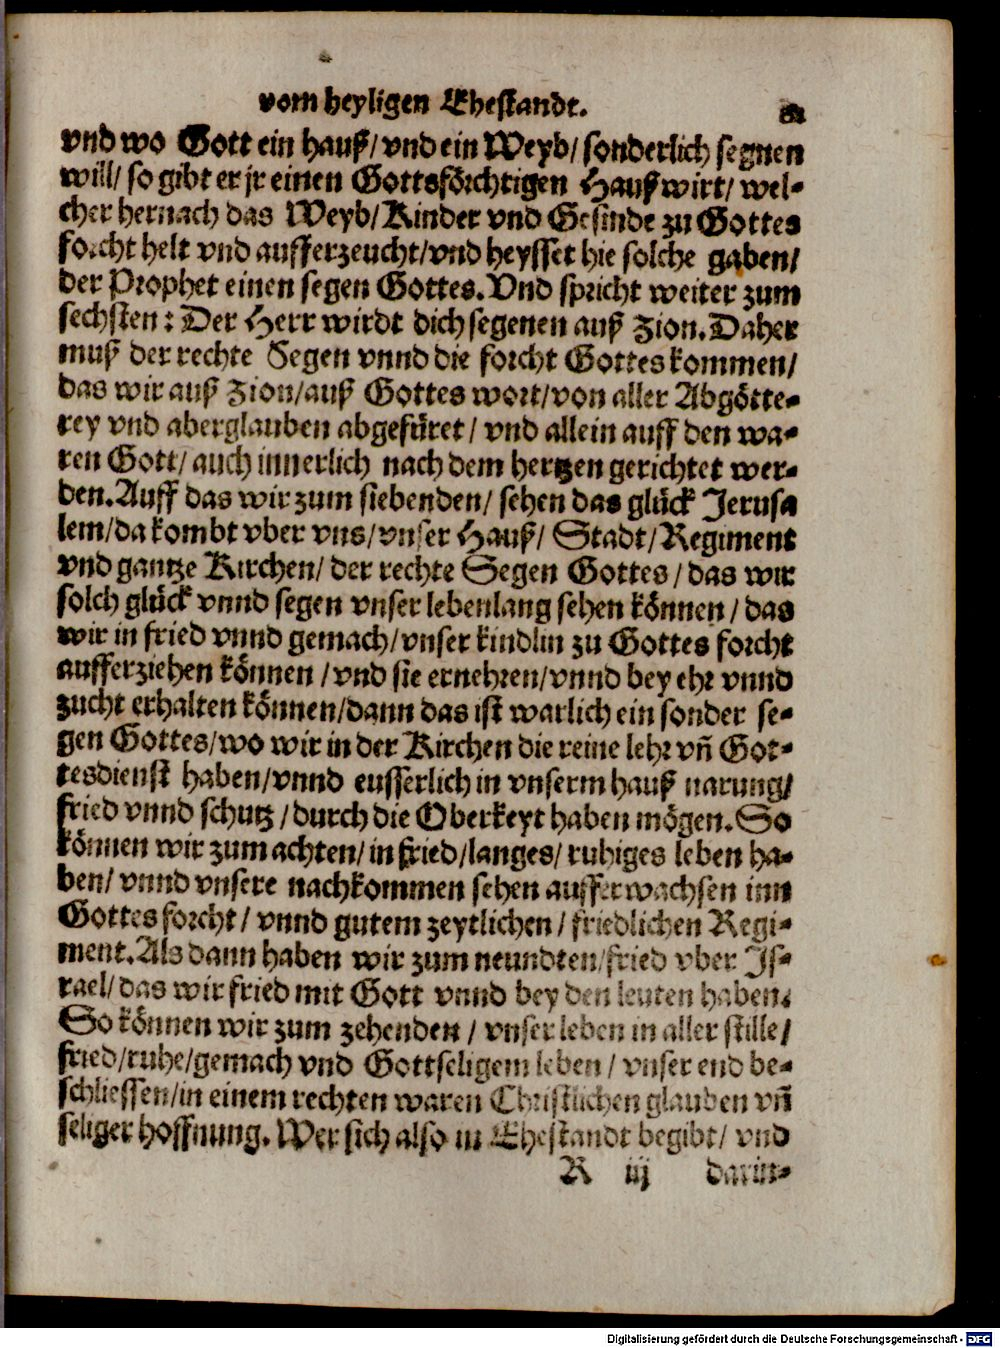 vom heyligen Ehestandt.
vnd wo Gott ein hauß/ vnd ein Weyb/ sonderlich segnen
will/ so gibt er jr einen Gottsförchtigen Haußwirt/ wel-
cher hernach das Weyb/ Kinder vnd Gesinde zu Gottes
forcht helt vnd aufferzeucht/ vnd heysset hie solche gaben/
der Prophet einen segen Gottes. Vnd spricht weiter zum
sechsten: Der Herr wirdt dich segenen auß Zion. Daher
muß der rechte Segen vnnd die forcht Gottes kommen/
das wir auß Zion/ auß Gottes wort/ von aller Abgötte-
rey vnd aberglauben abgefüret/ vnd allein auff den wa-
ren Gott/ auch innerlich nach dem hertzen gerichtet wer-
den. Auff das wir zum siebenden/ sehen das glück Jerusa
lem/ da kombt vber vns/ vnser Hauß/ Stadt/ Regiment
vnd gantze Kirchen/ der rechte Segen Gottes/ das wir
solch glück vnnd segen vnser lebenlang sehen können/ das
wir in fried vnnd gemach/ vnser kindlin zu Gottes forcht
aufferziehen können/ vnd sie ernehren/ vnnd bey ehr vnnd
zucht erhalten können/ dann das ist warlich ein sonder se-
gen Gottes/ wo wir in der Kirchen die reine lehr vñ Got-
tesdienst haben/ vnnd eusserlich in vnserm hauß narung/
fried vnnd schutz/ durch die Oberkeyt haben mögen. So
können wir zum achten/ in fried/ langes/ ruhiges leben ha-
ben/ vnnd vnsere nachkommen sehen aufferwachsen inn
Gottes forcht/ vnnd gutem zeytlichen/ friedlichen Regi-
ment. Als dann haben wir zum neundten/ fried vber Js-
rael/ das wir fried mit Gott vnnd bey den leuten haben.
So können wir zum zehenden/ vnser leben in aller stille/
fried/ ruhe/ gemach vnd Gottseligem leben/ vnser end be-
schliessen/ in einem rechten waren Christlichen glauben vñ
seliger hoffnung. Wer sich also in Ehestandt begibt/ vnd
R iij darin-
Digitalisierung gefördert durch die Deutsche Forschungsgemeinschaft - DFG